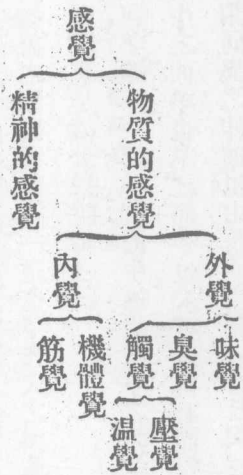 感覺
物質的感覺
精神的感覺
外覺
內覺
味覺
臭覺
觸覺
機體覺
筋覺
壓覺
温覺